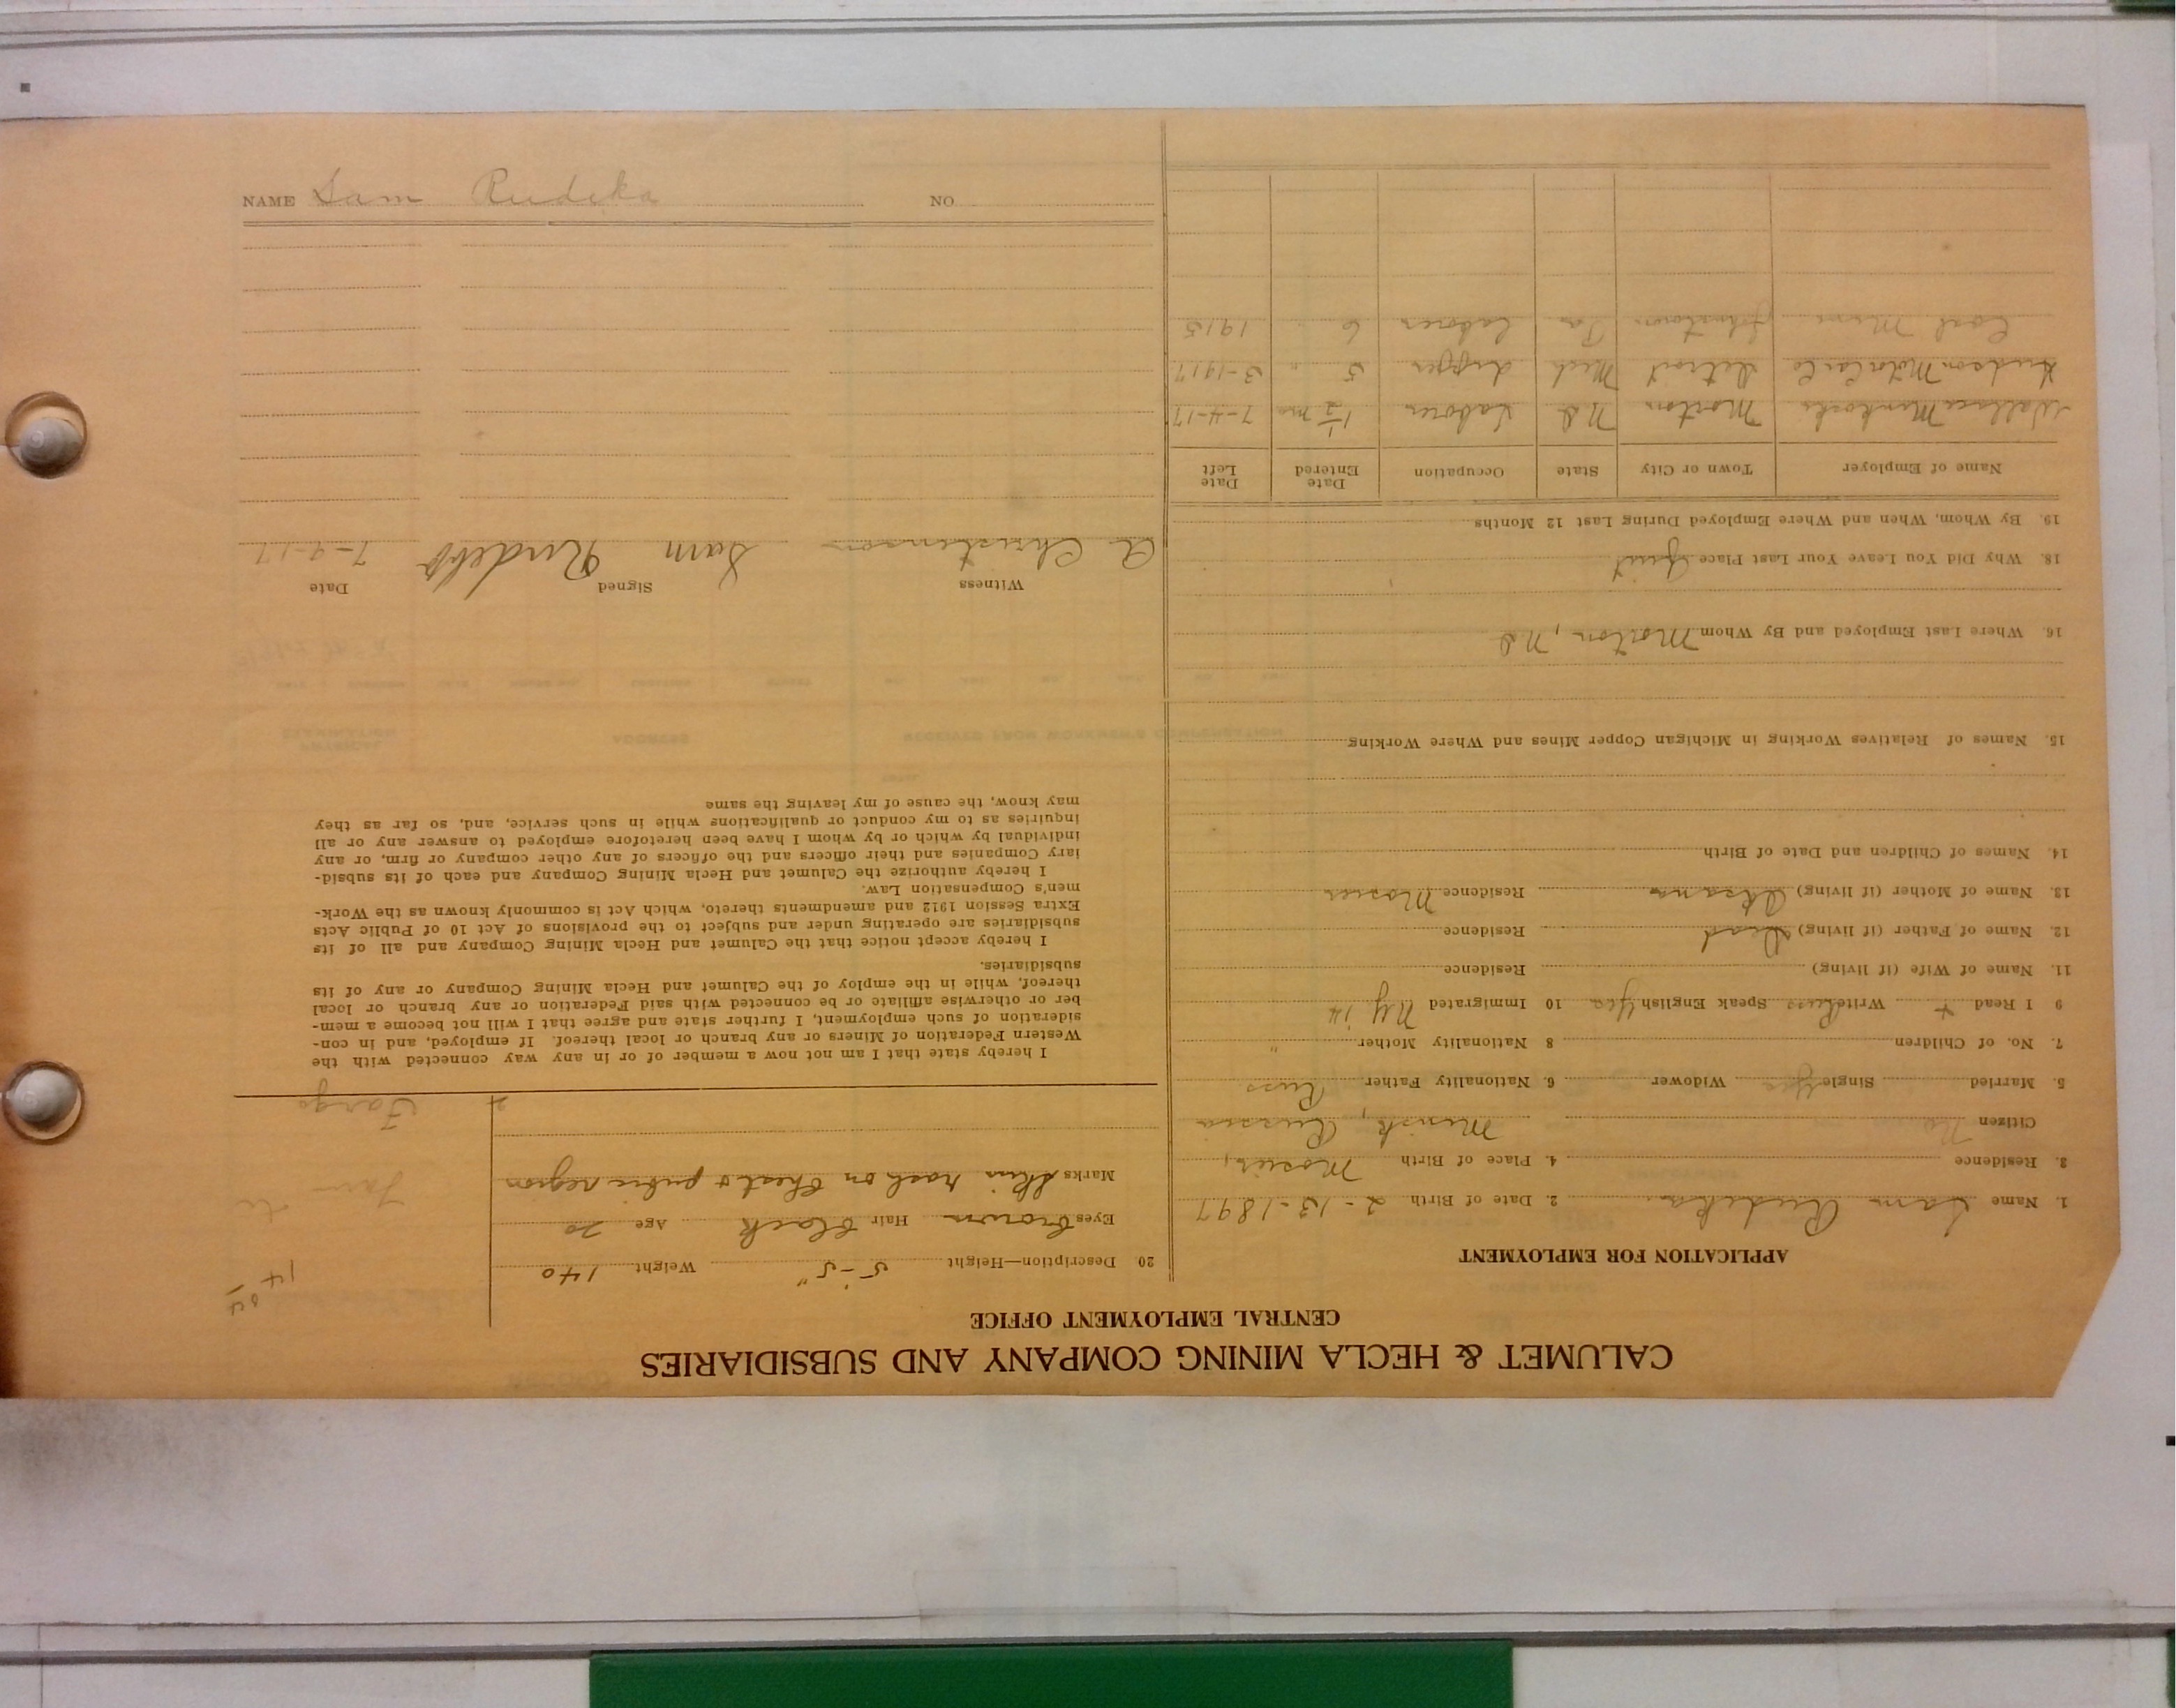 CALUMET & HECLA MINING COMPANY AND SUBSIDIARIES
CENTRAL EMPLOYMENT OFFICE
APPLICATION FOR EMPLOYMENT
1. Name Sam Rudeka 2. Date of Birth 2-13-1897
3. Residence 4. Place of Birth Mosier,
Citizen No Minsk, Russia
5. Married Single Yes Widower 6. Nationality Father Russ
7. No. of Children 8 Nationality Mother "
9 I Read + Write Russ Speak English Yes 10 Immigrated NY 14
11. Name of Wife (if living) Residence
12. Name of Father (if living) Dead Residence
13. Name of Mother (if living) Residence Mosier
14. Names of Children and Date of Birth
15. Names of Relatives Working in Michigan Copper Mines and Where Working
16. Where Last Employed and By Whom Morton, ND
18. Why Did You Leave Your Last Place Quit
19. By Whom, When and Where Employed During Last 12 Months
Name of Employer Town or City State Occupation Date Entered Date Left
Wallace Morton ND Laborer 1 1/2 mo 7-4-17
Hudson Motor Car Co Detroit Mich 5 " 3-1917
Coal Mine Johnstown Pa Laborer 6 1915
20 Description—Height 5'-5" Weight 140
Eyes Brown Hair Black Age 20
Marks Skin rash on Chest & pubic region
14
Fargo
I hereby state that I am not now a member of or in any way connected with the
Western Federation of Miners or any branch or local thereof. If employed, and in con-
sideration of such employment, I further state and agree that I will not become a mem-
ber or otherwise affiliate or be connected with said Federation or any branch or local
thereof, while in the employ of the Calumet and Hecla Mining Company or any of its
subsidiaries.
I hereby accept notice that the Calumet and Hecla Mining Company and all of its
subsidiaries are operating under and subject to the provisions of Act 10 of Public Acts
Extra Session 1912 and amendments thereto, which Act is commonly known as the Work-
men's Compensation Law.
I hereby authorize the Calumet and Hecla Mining Company and each of its subsid-
iary Companies and their officers and the officers of any other company or firm, or any
individual by which or by whom I have been heretofore employed to answer any or all
inquiries as to my conduct or qualifications while in such service, and, so far as they
may know, the cause of my leaving the same
Witness Signed Date
A Christenson Sam Rudeko 7-9-17
NAME Sam Rudeka NO